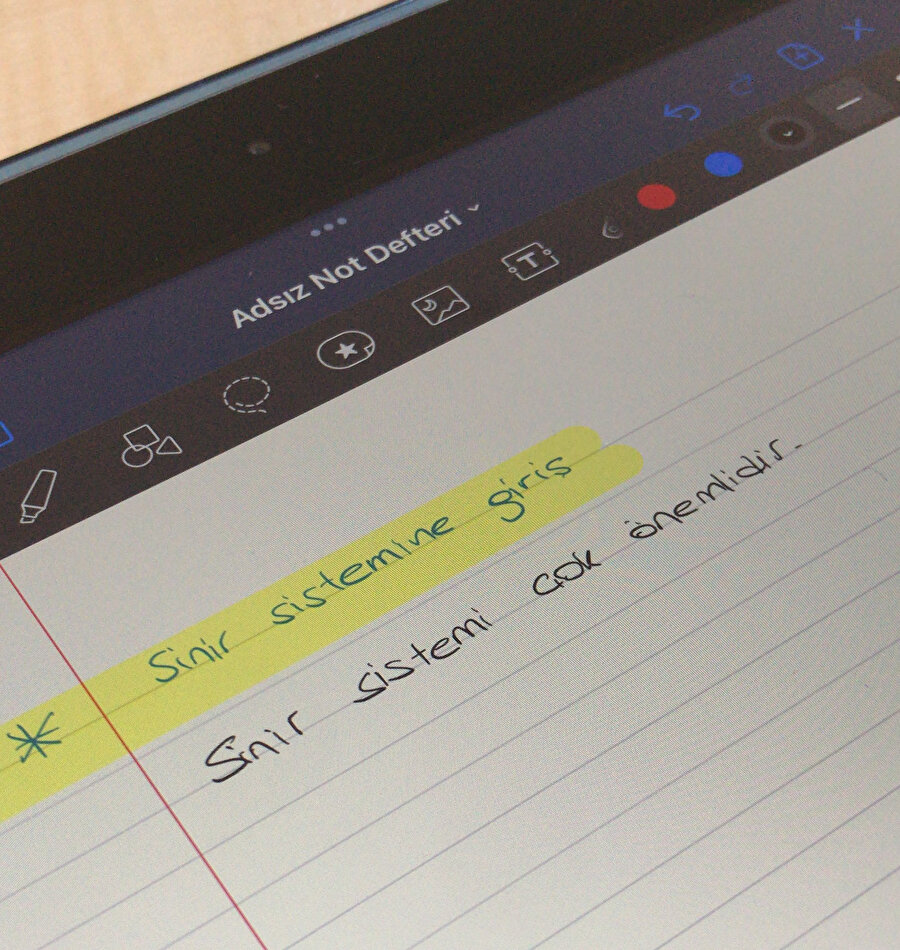 Adsız Not Defteri
* Sinir sistemine giriş
Sinir sistemi çok önemlidir.